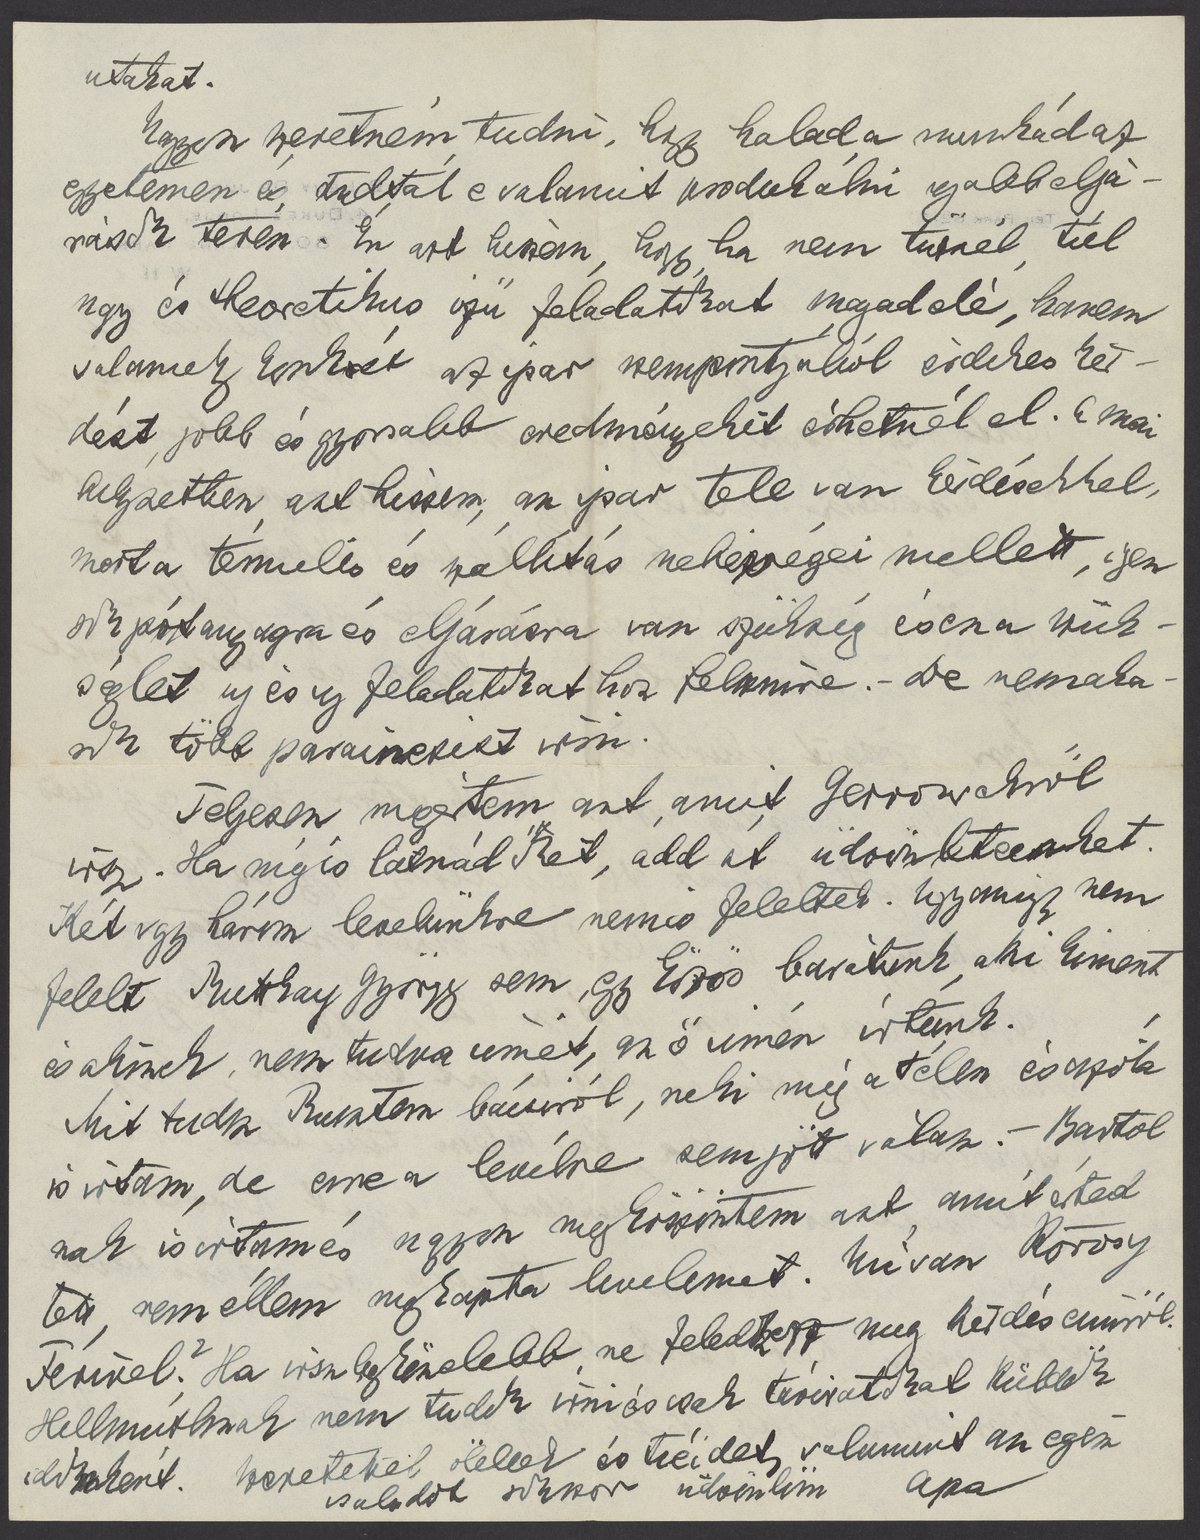 utakat.
Nagyon szeretném tudni, hogy halad a munkád az
egyetemen és, tudtál e valamit produkálni ujabb eljá-
rások terén. Én azt hiszem, hogy, ha nem tűznél, túl
nagy és theoretikus izü feladatokat magad elé, hanem
valamely konkrét az ipar szempontjából érdekes kér-
dést, jobb és gyorsabb eredményeket érhetnél el. A mai
helyzetben, azt hiszem, az ipar tele van kérdésekkel,
mert a termelés és szállitás nehézségei mellett, igen
sok pótanyagra és eljárásra van szükség és ez a szük-
séglet uj és uj feladatokat hoz felszinre. - De nem aka-
rok több parainesist irni.
Teljesen megértem azt, amit Gerrowékről
irsz. Ha mégis látnád őket, add át üdvözleteinket.
Két vagy három levelünkre nem is feleltek. Ugyanigy nem
felelt Ruttkay György sem, egy közös barátunk, aki kiment
és akinek, nem tudva cimét, az ő cimén írtunk.
Mit tudsz Rusztem bácsiról, neki még a télen és azóta
is irtam, de erre a levélre sem jött válasz. - Bartók
nak is irtam és nagyon megköszöntem azt, amit érted
tett, remélem megkapta levelemet. Mi van Kőrösy
Ferivel? Ha irsz legközelebb, ne feledkezz meg kérdéseimről.
Hellmuthnak nem tudok irni és csak táviratokat küldök
időnként. Szeretettel ölellek és tieidet, valamint az egész
családot sokszor üdvözlöm Apa